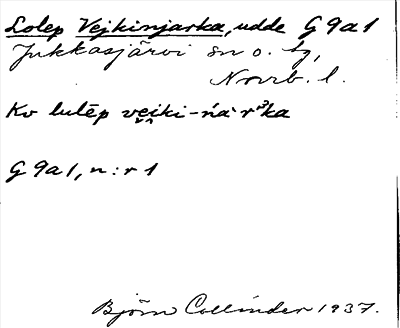 Lolep Vejkinjarka, udde G 9a1
Jukkasjärvi sn o. tg,
Norrb. l.
Kv lulēp vei̯ki-ńàrᵊka
G 9a1, n:r 1
Björn Collinder 1937.